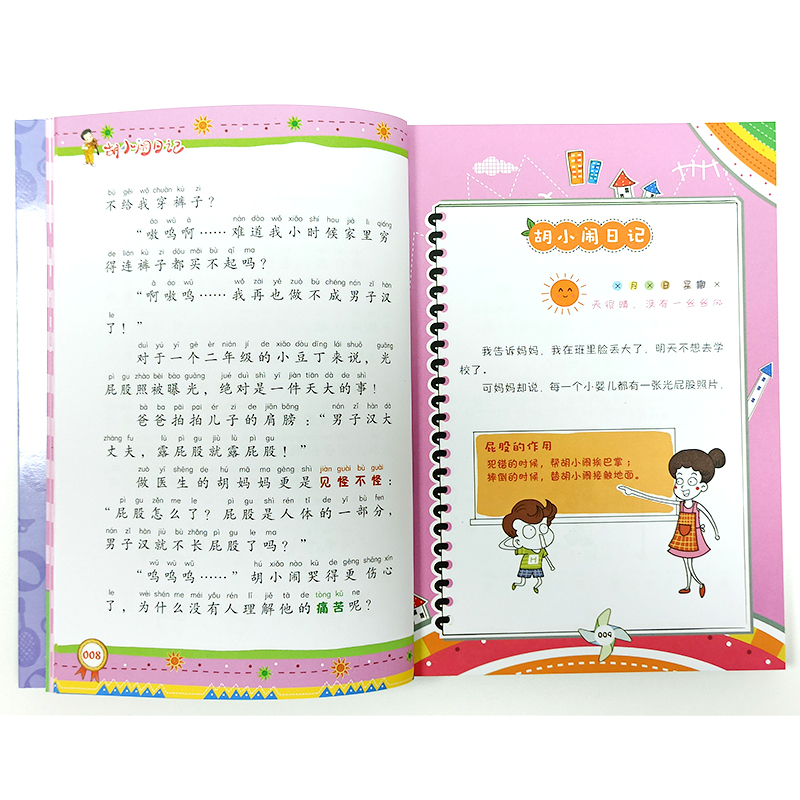 胡小闹日记
bù gěi wǒ chuān kù zi
不给我穿裤子？
áo wū ā nán dào wǒ xiǎo shí hou jiā lǐ qióng
“嗷呜啊……难道我小时候家里穷
de lián kù zi dōu mǎi bù qǐ ma
得连裤子都买不起吗？
ā áo wū wǒ zài yě zuò bù chéng nán zǐ hàn
“啊嗷呜……我再也做不成男子汉
le
了！”
duì yú yī gè èr nián jí de xiǎo dòu dīng lái shuō guāng
对于一个二年级的小豆丁来说，光
pì gu zhào bèi bào guāng jué duì shì yī jiàn tiān dà de shì
屁股照被曝光，绝对是一件天大的事！
bà ba pāi pai ér zi de jiān bǎng nán zǐ hàn dà
爸爸拍拍儿子的肩膀：“男子汉大
zhàng fu lù pì gu jiù lù pì gu
丈夫，露屁股就露屁股！”
zuò yī shēng de hú mā ma gèng shì jiàn guài bù guài
做医生的胡妈妈更是见怪不怪：
pì gu zěn me le pì gu shì rén tǐ de yī bù fen
“屁股怎么了？屁股是人体的一部分，
nán zǐ hàn jiù bù zhǎng pì gu le ma
男子汉就不长屁股了吗？”
wū wū wū hú xiǎo nào kū de gèng shāng xīn
“呜呜呜……”胡小闹哭得更伤心
le wèi shén me méi yǒu rén lǐ jiě tā de tòng kǔ ne
了，为什么没有人理解他的痛苦呢？
008
胡小闹日记
×月×日 星期×
天很晴，没有一丝丝风
我告诉妈妈，我在班里脸丢大了，明天不想去学
校了。
可妈妈却说，每一个小婴儿都有一张光屁股照片。
屁股的作用
犯错的时候，帮胡小闹挨巴掌；
摔倒的时候，替胡小闹接触地面。
009